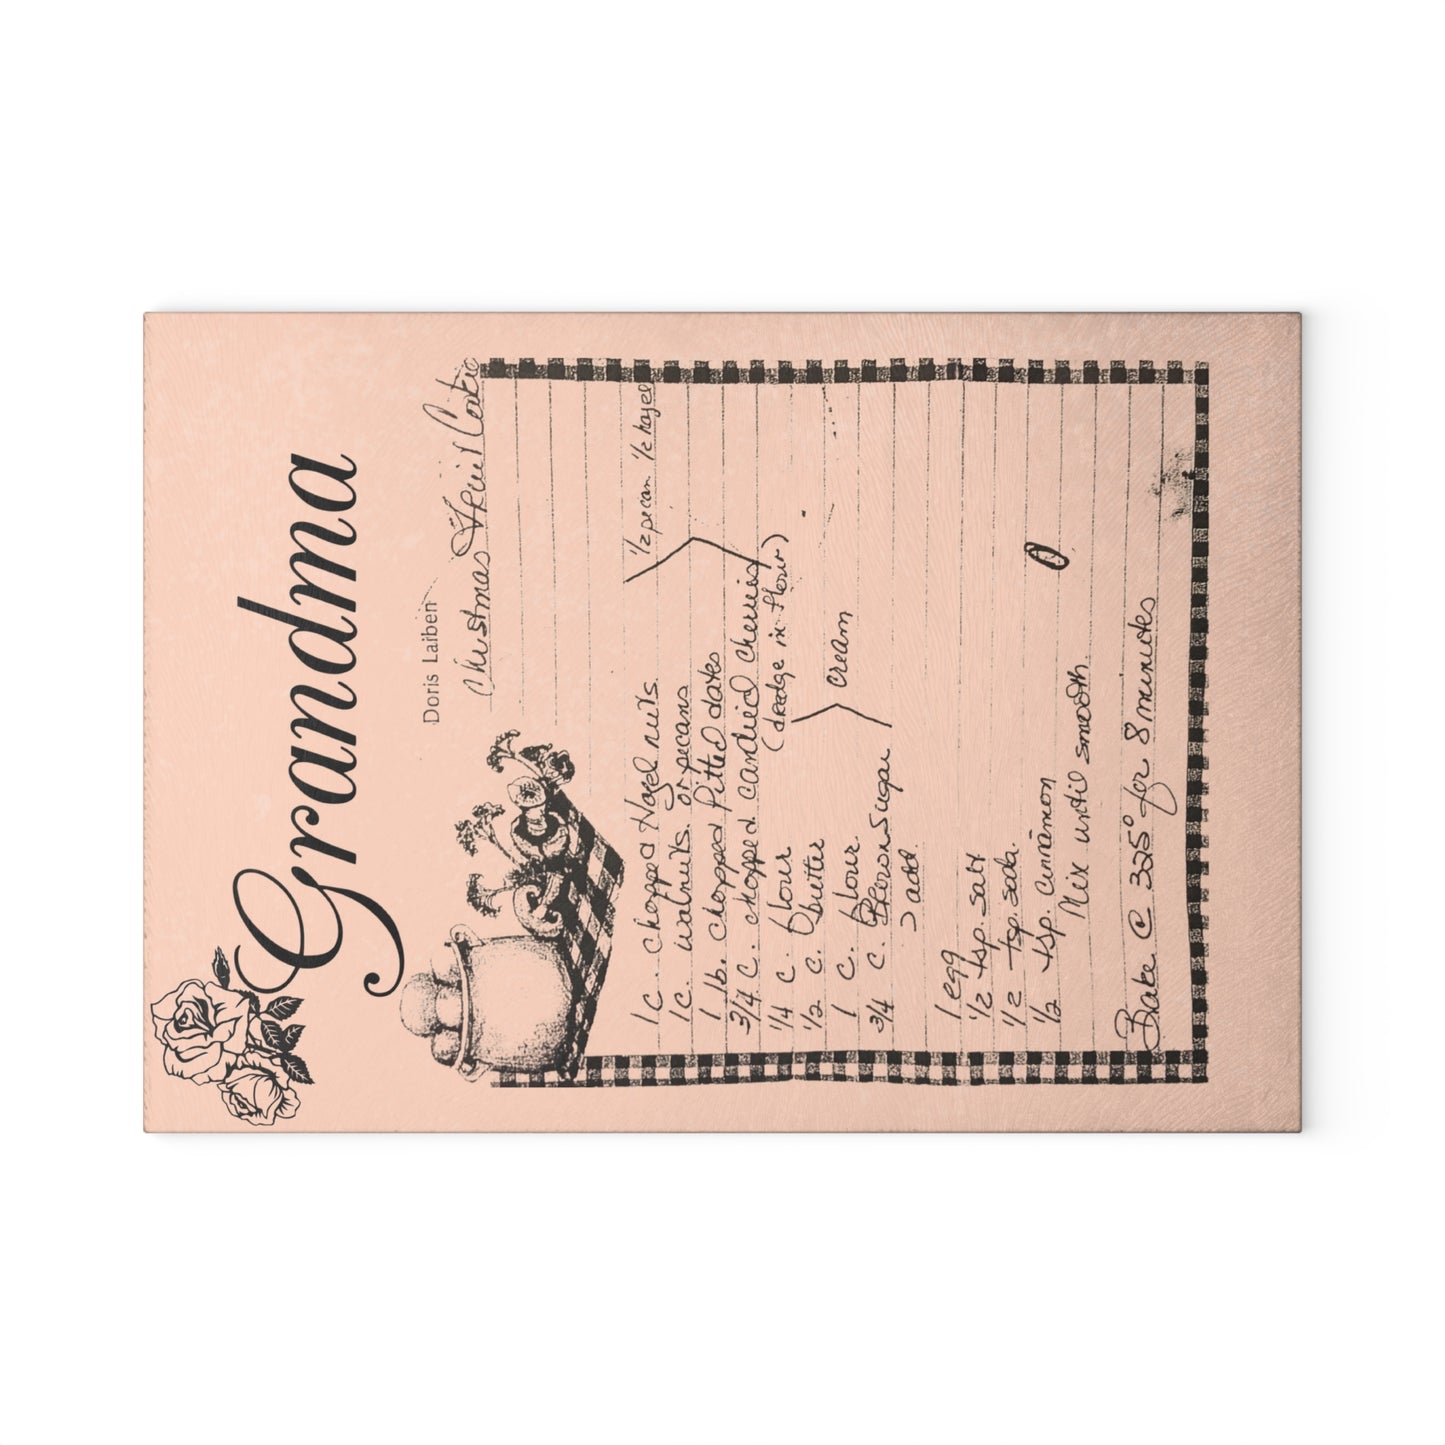 Grandma
Doris Laiben
Christmas Fruit Cookie
1 c. chopped Hazel nuts
1 c. walnuts. or pecans
1/2 pecan 1/2 hazel
1 lb. chopped Pitted dates
3/4 c. chopped candied cherries
1/4 c. flour (dredge in flour)
1/2 c. butter
1 c. flour
cream
3/4 c. Brown Sugar
add
1 egg
1/2 tsp. salt
1/2 tsp. soda.
1/2 tsp. cinnamon
Mix until smooth.
Bake @ 325° for 8 minutes